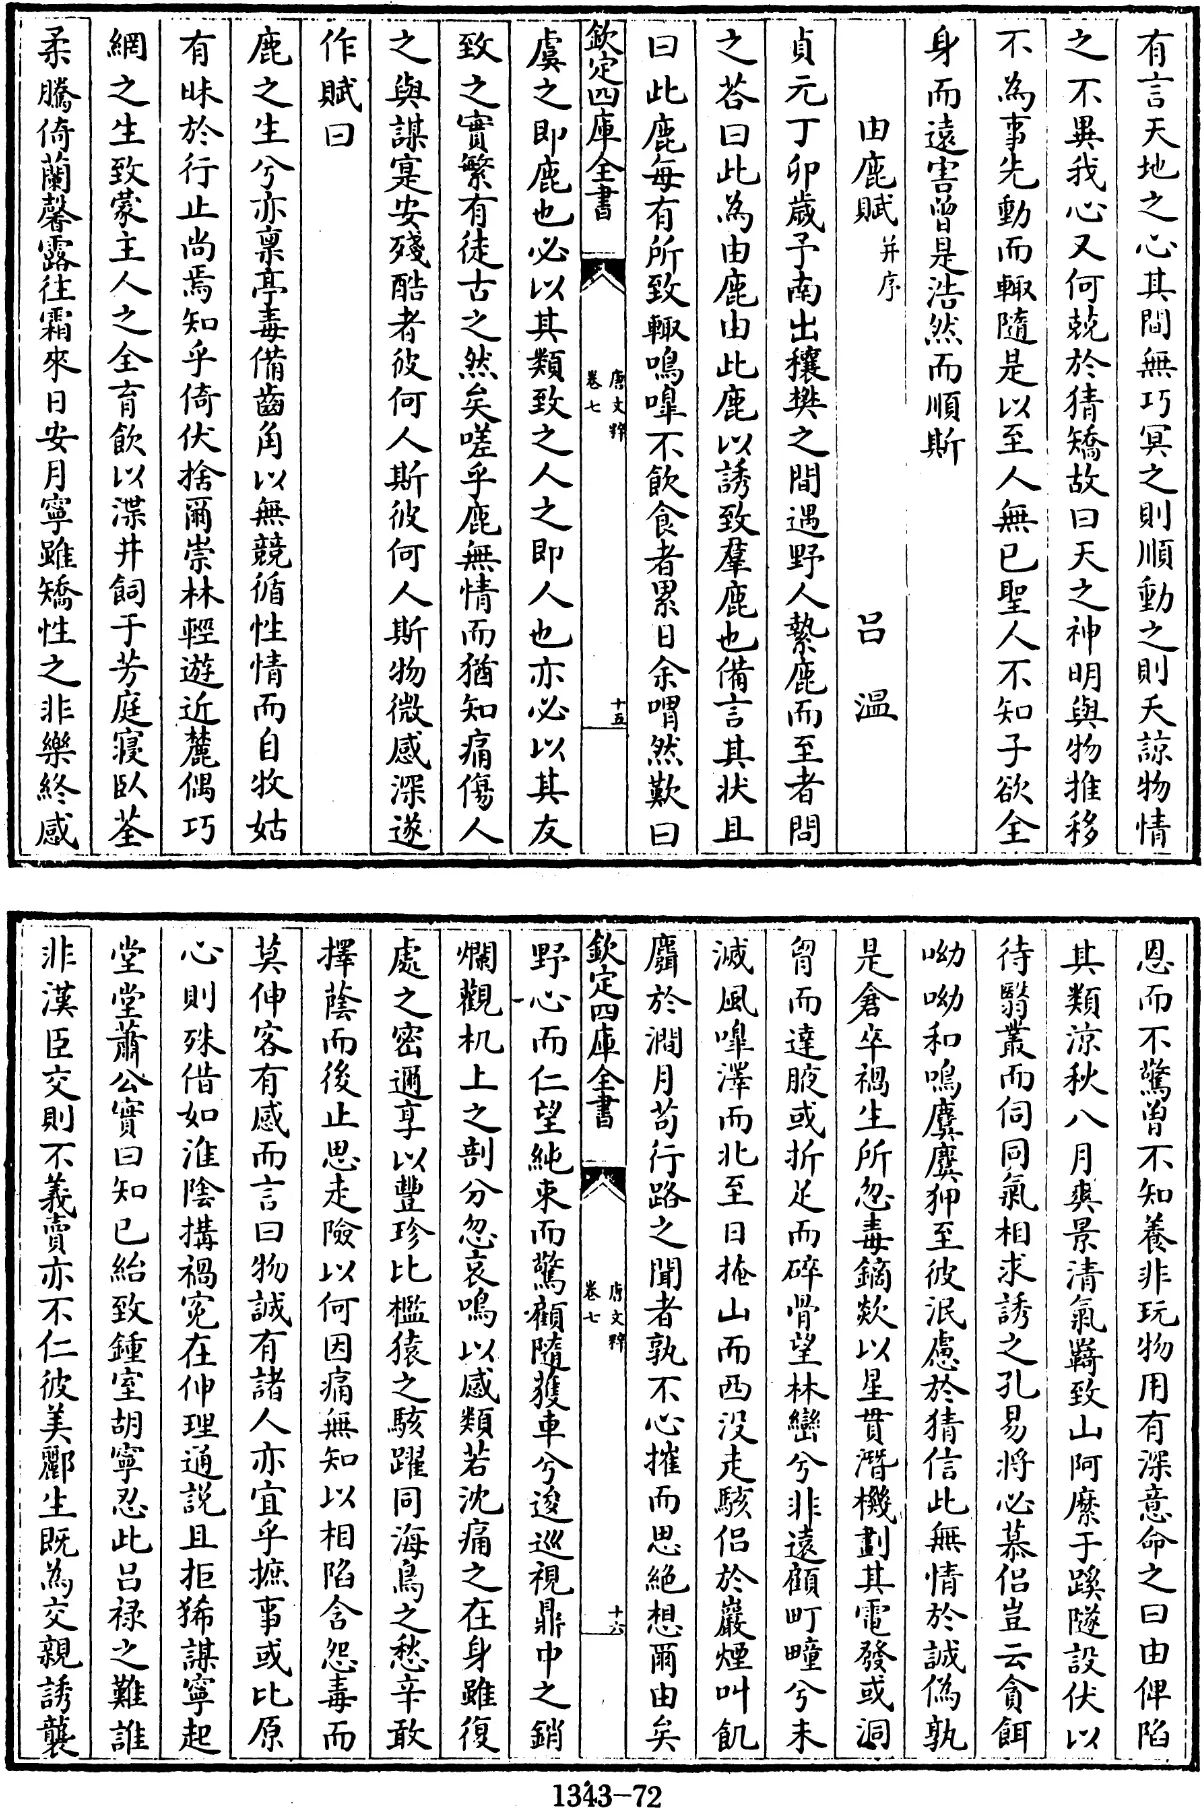 有言天地之心其間無巧冥之則順動之則夭諒物情
之不異我心又何兢於猜矯故曰天之神明與物推移
不為事先動而輙隨是以至人無已聖人不知子欲全
身而遠害曾是浩然而順斯
由鹿賦并序 呂溫
貞元丁卯歲予南出穰樊之間遇野人縶鹿而至者問
之荅曰此為由鹿由此鹿以誘致羣鹿也備言其状且
曰此鹿每有所致輙鳴嘷不飲食者累日余喟然歎曰
欽定四庫全書
唐文粹
卷七
十五
虞之即鹿也必以其類致之人之即人也亦必以其友
致之實繁有徒古之然矣嗟乎鹿無情而猶知痛傷人
之與謀寔安殘酷者彼何人斯彼何人斯物微感深遂
作賦曰
鹿之生兮亦禀亭毒備齒角以無競循性情而自牧姑
有昧於行止尚焉知乎倚伏捨爾崇林輕遊近麓偶巧
網之生致蒙主人之全育飲以渫井飼于芳庭寢臥荃
柔騰倚蘭馨露往霜來日安月寧雖矯性之非樂終感
恩而不驚曽不知養非玩物用有深意命之曰由俾陷
其類涼秋八月爽景清氣羇致山阿縻于蹊隧設伏以
待翳叢而伺同氣相求誘之孔易將必慕侶豈云貪餌
呦呦和鳴麌麌狎至彼泯慮於猜信此無情於誠偽孰
是倉卒禍生所忽毒鏑欻以星貫潛機劃其電發或洞
胷而達腋或折足而碎骨望林巒兮非遠顧町疃兮未
滅風嘷澤而北至日掩山而西没走駭侣於巖煙叫飢
麛於澗月苟行路之聞者孰不心摧而思絶想爾由矣
欽定四庫全書
唐文粹
卷七
十六
野心而仁望純束而驚顧隨獲車兮逡巡視鼎中之銷
爛觀机上之剖分忽哀鳴以感類若沈痛之在身雖復
處之密邇享以豐珍比檻猿之駭躍同海鳥之愁辛敢
擇蔭而後止思走險以何因痛無知以相陷含怨毒而
莫伸客有感而言曰物誠有諸人亦宜乎摭事或比原
心則殊借如淮陰搆禍寃在仲理通説且拒豨謀寧起
堂堂蕭公實曰知已紿致鍾室胡寧忍此呂禄之難誰
非漢臣交則不義賣亦不仁彼美酈生既為交親誘襲
1343-72